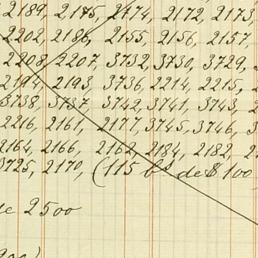 2189, 2175, 2174, 2172, 2173,
2202, 2186, 2155, 2156, 2157,
2208, 2207, 3732, 3730, 3729,
2194, 2193, 3736, 2214, 2215,
3738, 3737, 3742, 3741, 3743,
2216, 2161, 2177, 3745, 3746,
2164, 2166, 2162, 2184, 2182,
3725, 2170, (115 bs de $ 100
de 2500